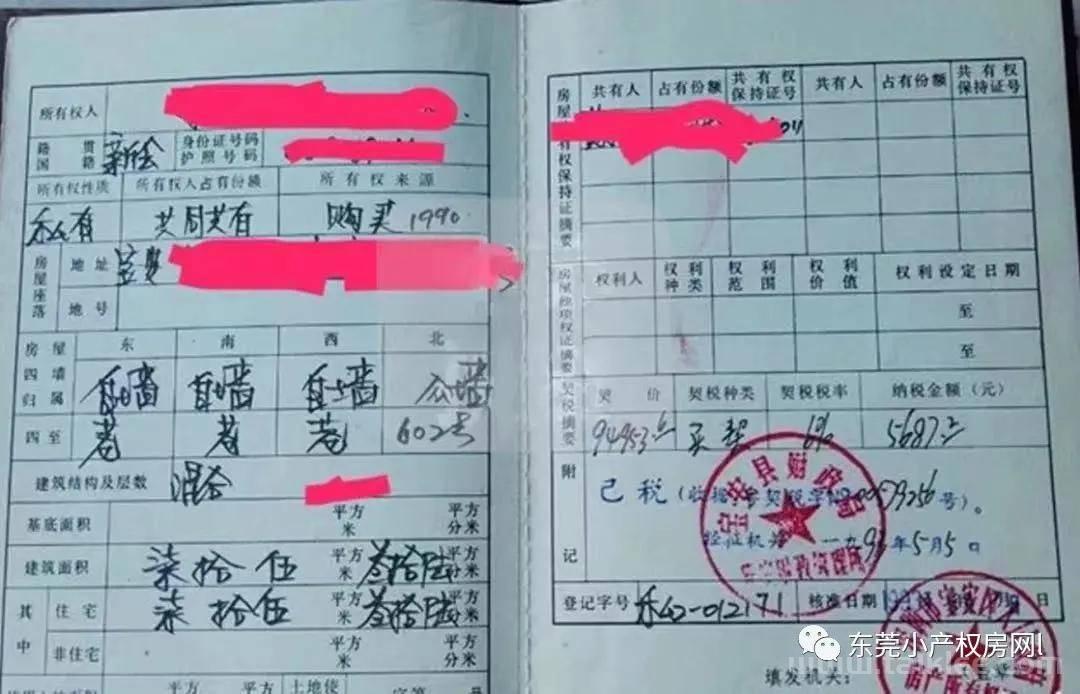 所有权人
籍贯 国籍 新会 身份证号码 护照号码
所有权性质 所有权人占有份额 所有权来源
私有 共同共有 购买1990
房屋座落 地址 宝安
地号
房屋 东 南 西 北
四墙归属 自墙 自墙 自墙 公墙
四至 巷 巷 巷 602号
建筑结构及层数 混合
基底面积 平方米 平方分米
建筑面积 柒拾伍 平方米 叁拾陆 平方分米
其中 住宅 柒拾伍 平方米 叁拾陆 平方分米
非住宅 平方米 平方分米
平方 土地使
房屋共有权保持证摘要 共有人 占有份额 共有权保持证号 共有人 占有份额 共有权保持证号
房屋他项权证摘要 权利人 权利种类 权利范围 权利价值 权利设定日期
至
至
契税摘要 契价 契税种类 契税税率 纳税金额（元）
买契 6%
附记 已税
宝安县财政局
年5月5日
登记字号 私公-012171 核准日期
填发机关：
东莞小产权房网